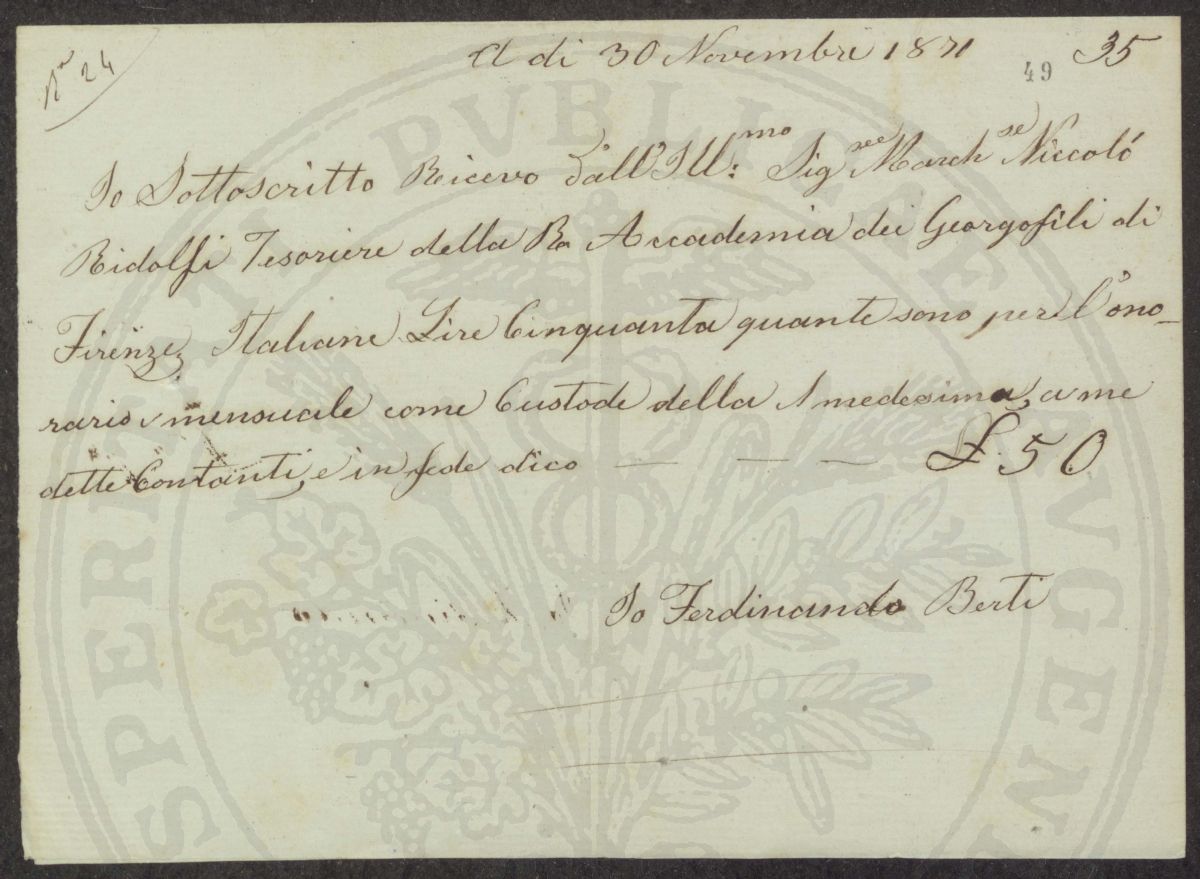 N° 24
A di 30 Novembre 1871
49
35
Io Sottoscritto Ricevo dall'Ill:mo Sigree Marchse Niccoló
Ridolfi Tesoriere della Ra Accademia dei Georgofili di
Firenze, Italiane Lire Cinquanta quante sono per l'ono-
rario mensuale come Custode della Medesima, a me
dette Contanti, e in fede dico — — — £. 50
Io Ferdinando Berti
PVBLICAE
SPERITATI
AVGEN